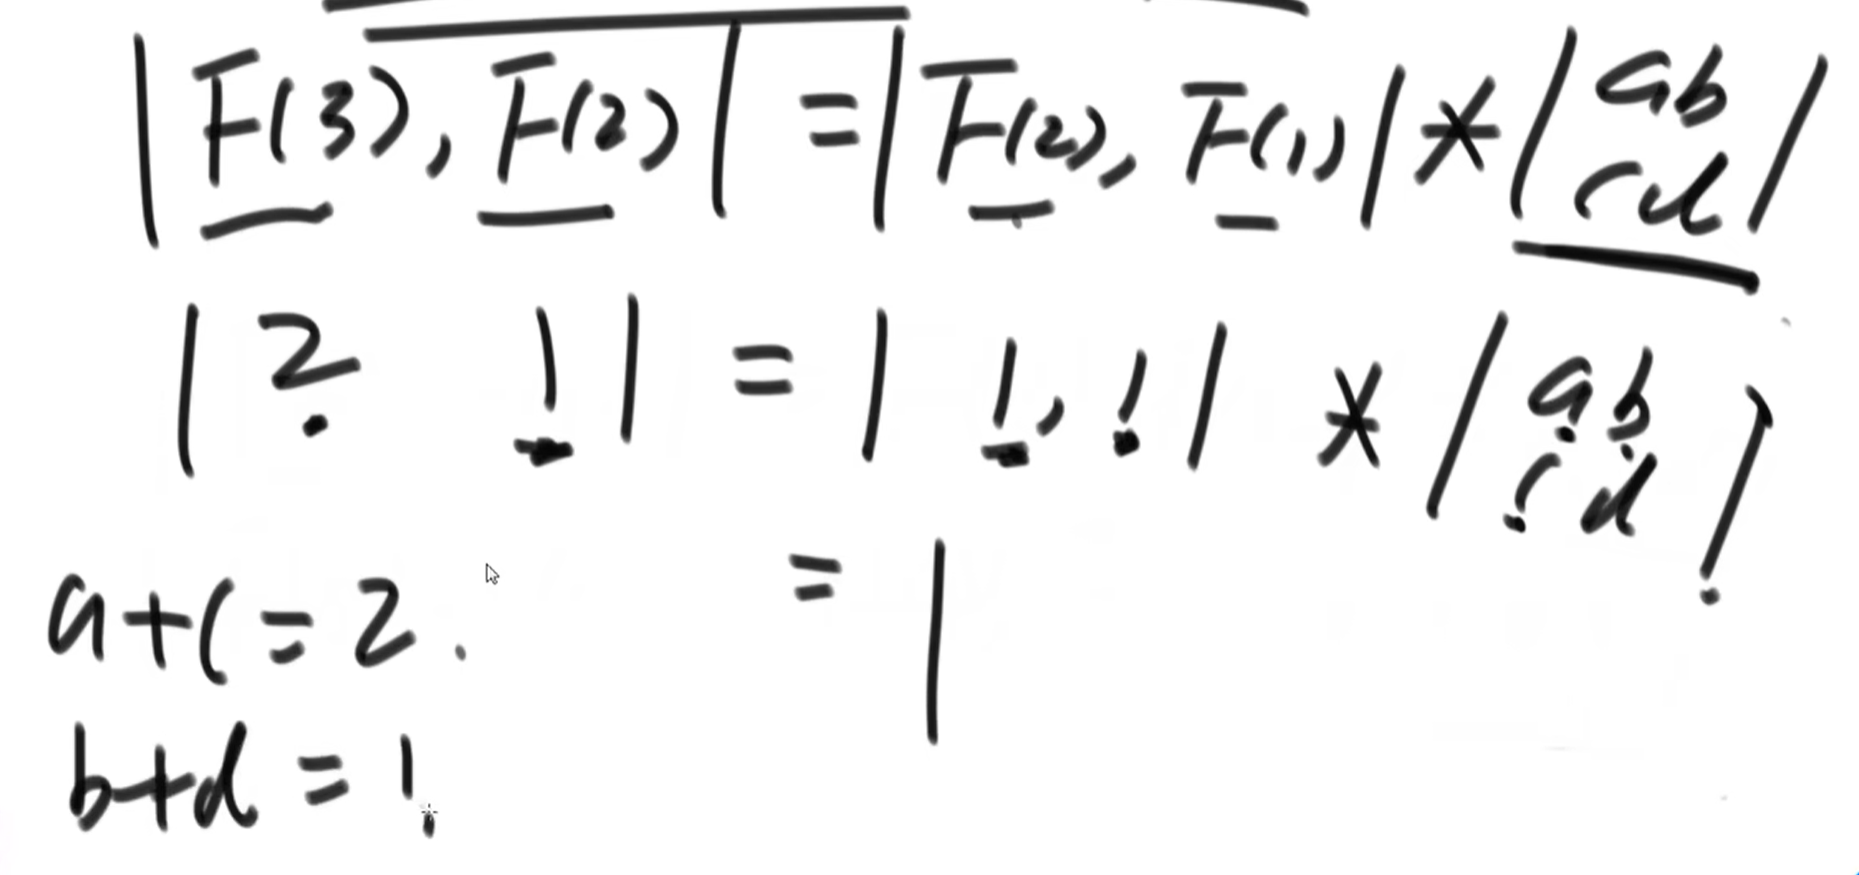 |F(3), F(2)| = |F(2), F(1)| * |a b
c d|
|2 1| = |1, 1| * |a b
c d|
a+c=2. = |
b+d = 1.